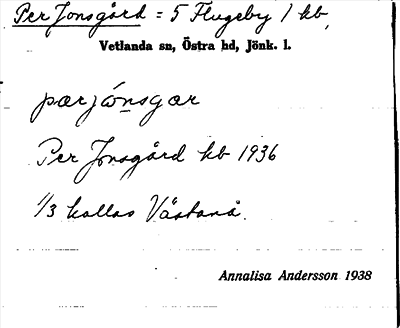 Per Jonsgård = 5 Flugeby 1 kb,
Vetlanda sn, Östra hd, Jönk. l.
pærjónsgær
Per Jonsgård kb 1936
1/3 kallas Västanå.
Annalisa Andersson 1938